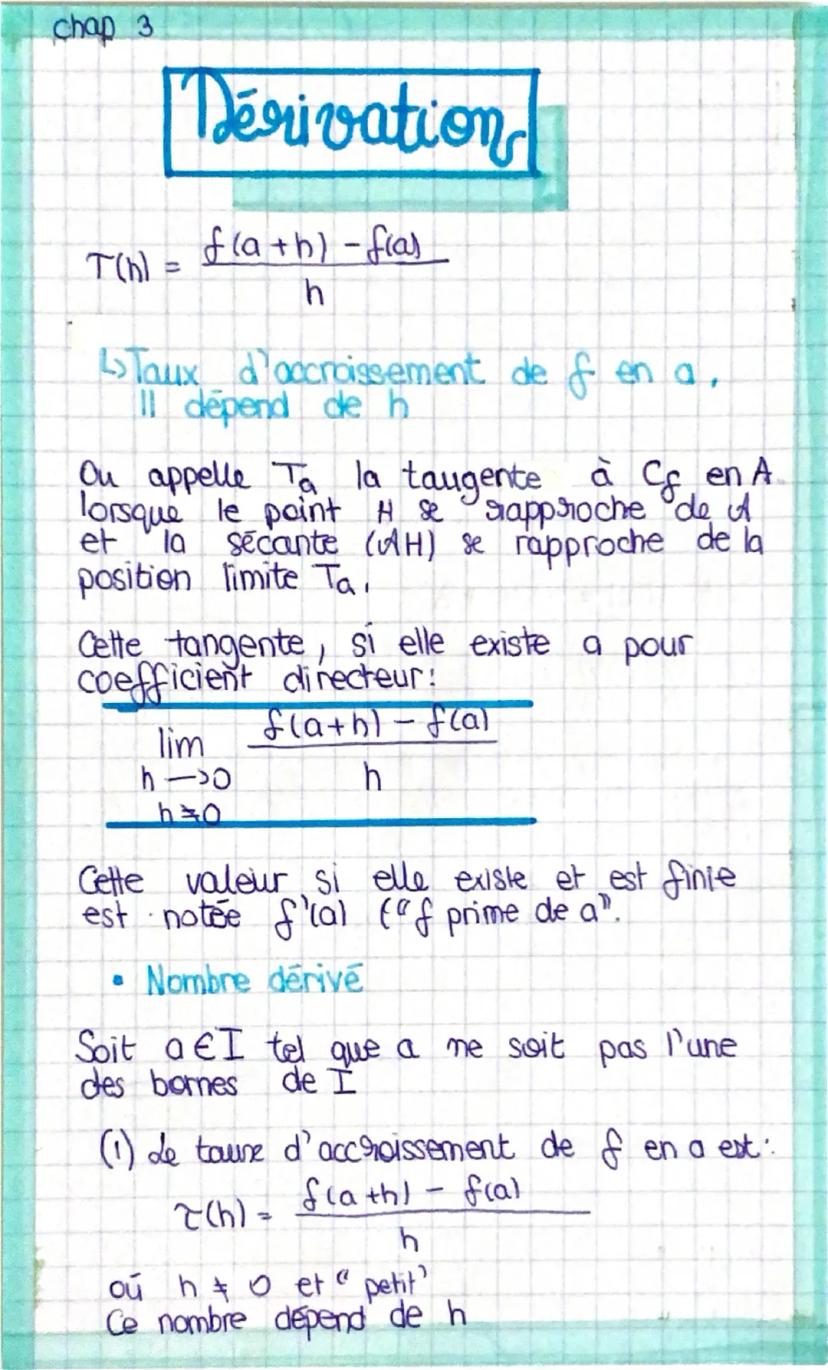 chap 3
Dérivation
T(h) = f(a+h) - f(a)
h
↳Taux d'accroissement de f en a.
Il dépend de h
On appelle Ta la tangente à Cf en A
lorsque le point H se rapproche de A
et la sécante (AH) se rapproche de la
position limite Ta.
Cette tangente, si elle existe a pour
coefficient directeur:
lim f(a+h) - f(a)
h →0 h
h≠0
Cette valeur si elle existe et est finie
est notée f'(a) ("f prime de a".
• Nombre dérivé
Soit a∈I tel que a ne soit pas l'une
des bornes de I
(1) Le taux d'accroissement de f en a est:
τ(h) = f(a+h) - f(a)
h
où h ≠ 0 et "petit"
Ce nombre dépend de h